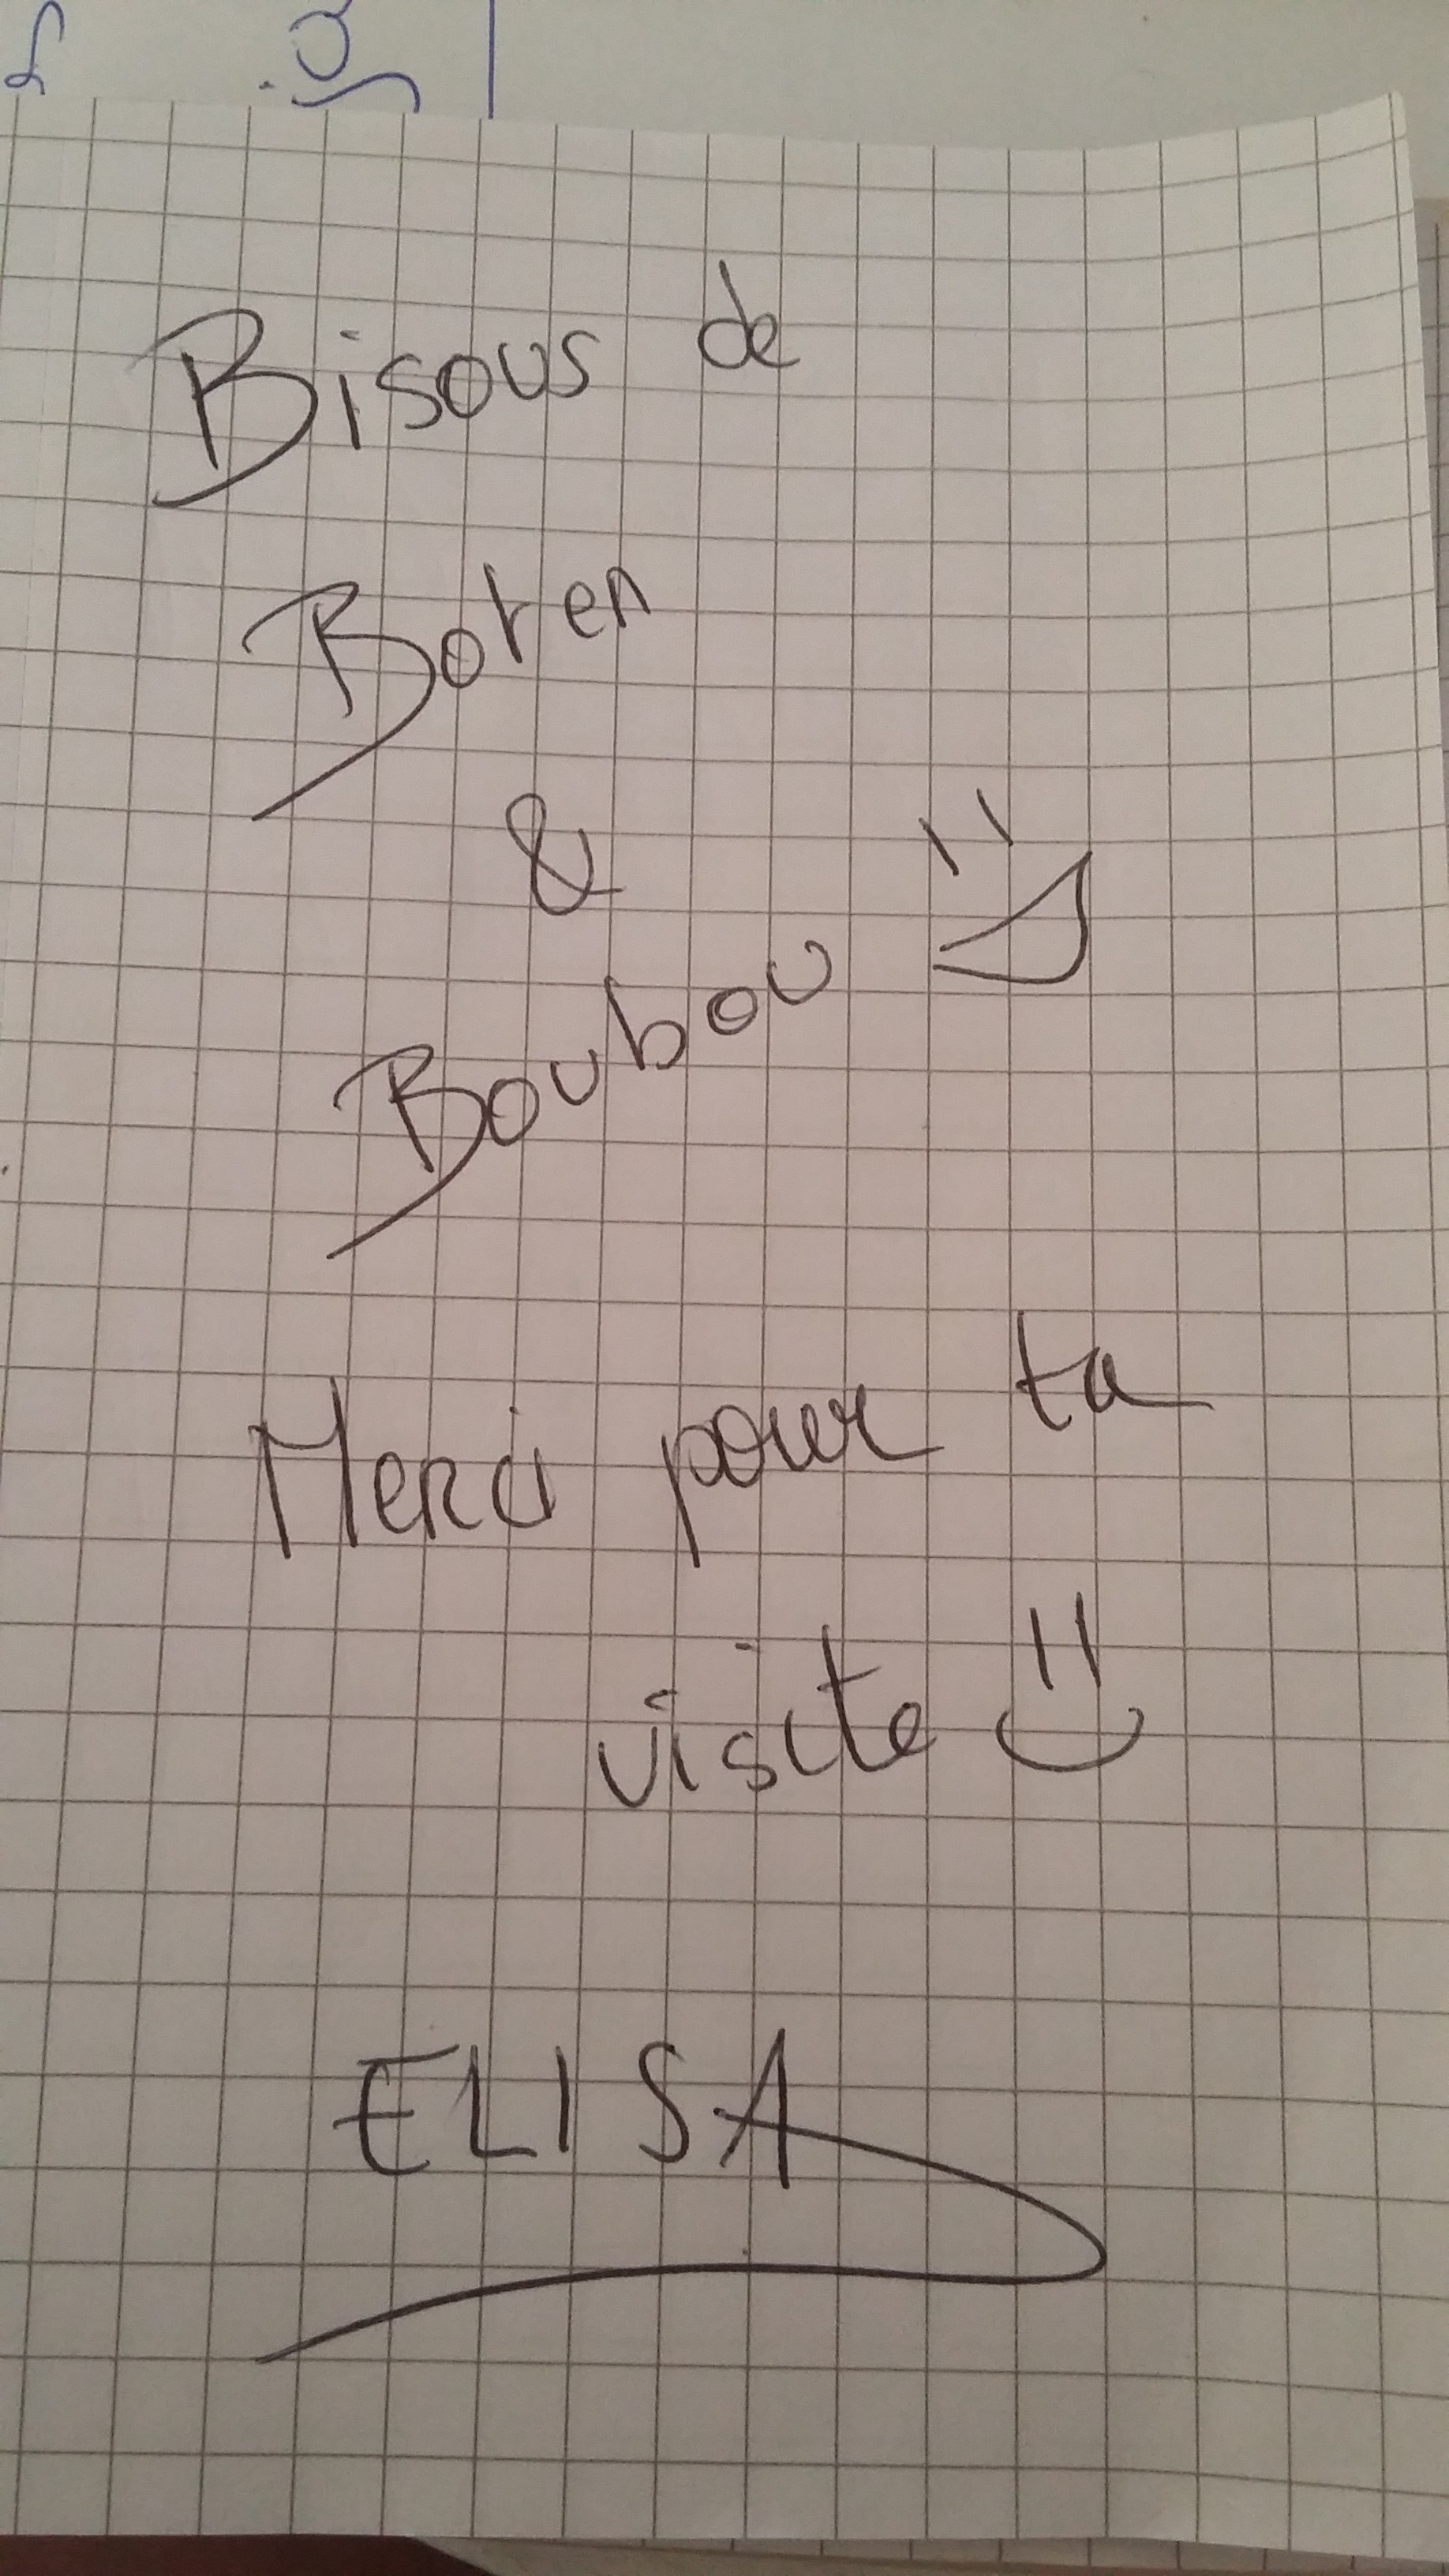 Bisous de
Boren
&
Boubou
Merci pour ta
visite
ELISA